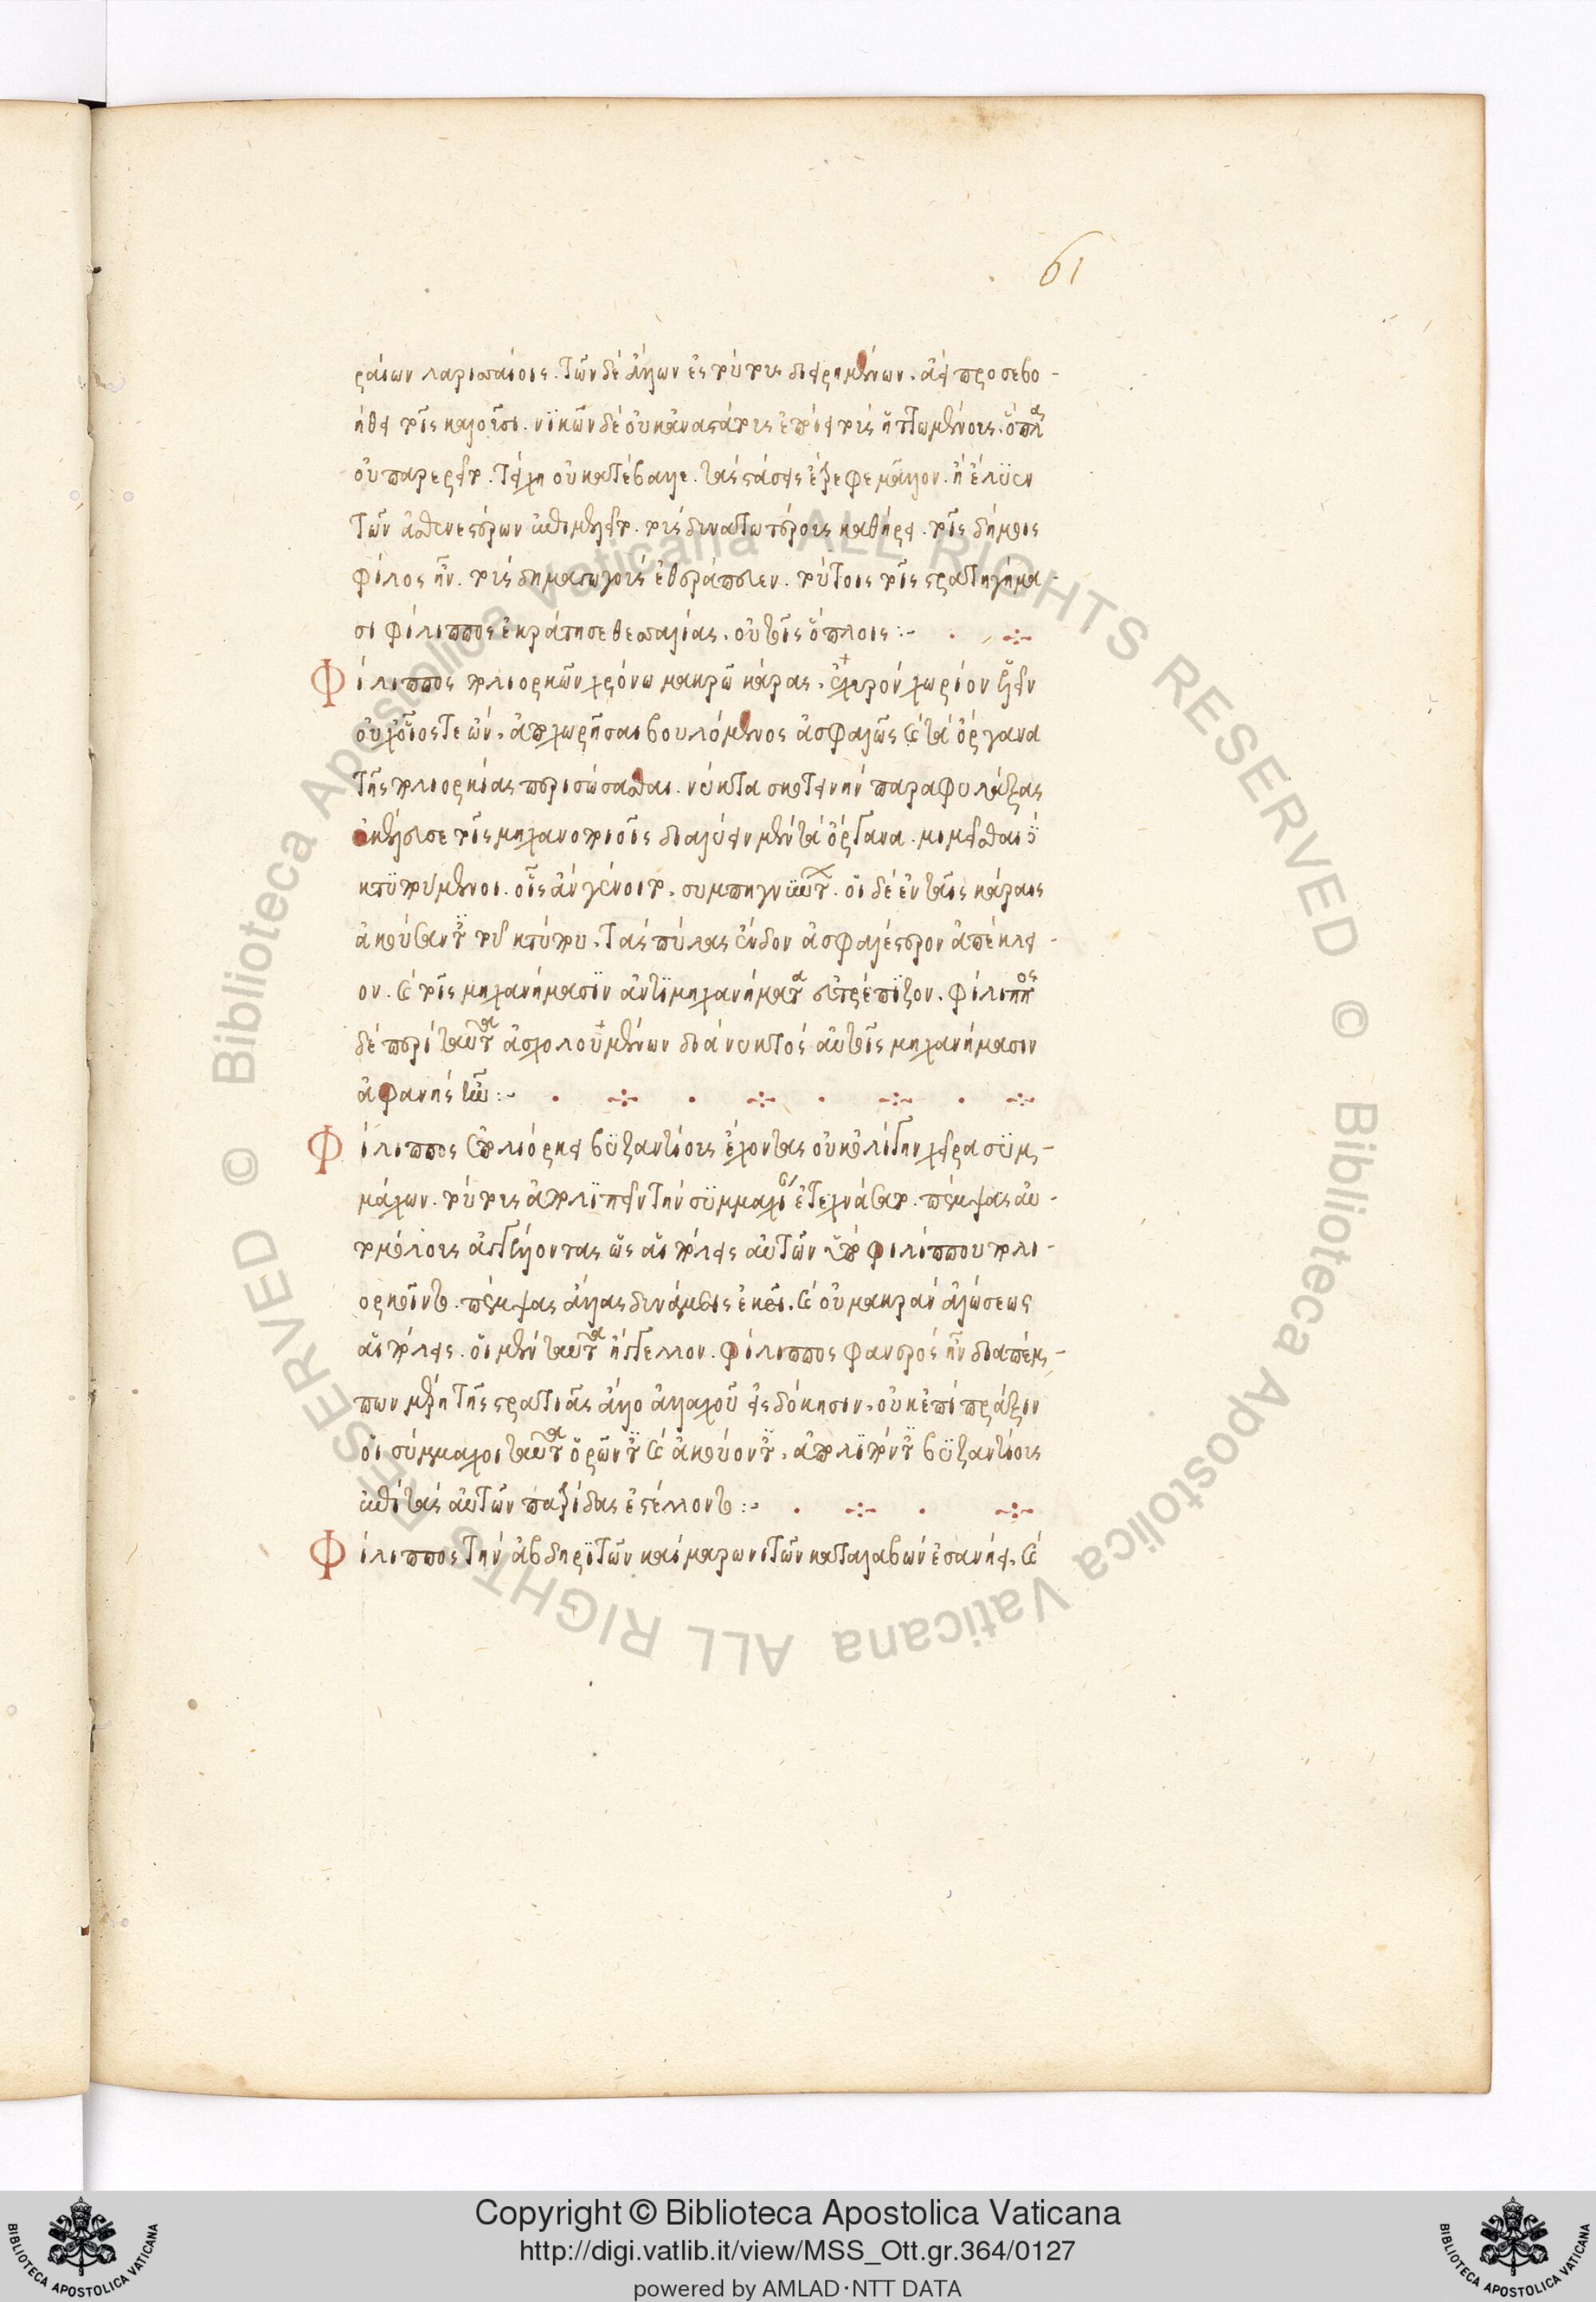 61
ραίων λαρισσαίοις. τῶν δὲ ἄλλων ἐς τούτους διῃρημένων. ἀεὶ προσεβο-
ήθει τοῖς καλοῦσι. νικῶν δὲ οὐκ ἀναστάτους ἐποίει τοὺς ἡττωμένους. ὅπλα
οὐ παρείρετο. τείχη οὐ κατέβαλλε. τὰς στάσεις ἔτρεφε μᾶλλον. ἢ ἔλυεν
τῶν ἀσθενεστέρων ἐπεμελεῖτο. τοὺς δυνατωτέρους καθῄρει. τοῖς δήμοις
φίλος ἦν. τοὺς δημαγωγοὺς ἐθεράπευεν. τούτοις τοῖς στρατηγήμα-
σι φίλιππος ἐκράτησε θεσσαλίας. οὐ τοῖς ὅπλοις:-
Φίλιππος πολιορκῶν χρόνω μακρῶ κάρας. ἐχυρὸν χωρίον ἑλεῖν
οὐχ οἷός τε ὤν. ἀποχωρῆσαι βουλόμενος ἀσφαλῶς καὶ τὰ ὄργανα
τῆς πολιορκίας περισώσασθαι. νύκτα σκοτεινὴν παραφυλάξας
ἐκέλευσε τοῖς μηχανοποιοῖς διαλύειν μὲν τὰ ὄργανα. μιμεῖσθαι
κτύπου μένοι. οἷς ἂν γένοιτο. συμπηγνυ. οἱ δὲ ἐν ταῖς κάραις
ἀκούσαντες τοῦ κτύπου. τὰς πύλας ἔνδον ἀσφαλέστερον ἀπέκλει-
ον. καὶ τοῖς μηχανήμασιν ἀντιμηχανήματα εὐτρέπιζον. φίλιππος
δὲ περὶ ταῦτα ἀσχολουμένων διὰ νυκτὸς αὐταῖς μηχανήμασιν
ἀφανὴς :-
Φίλιππος ἐπολιόρκει βυζαντίους ἔχοντας οὐκ ὀλίγην χεῖρα συμ-
μάχων. τούτους ἀπολιπεῖν τὴν συμμαχίαν ἐτεχνάσατο. πέμψας αὐ-
τομόλους ἀγγέλλοντας ὡς αἱ πόλεις αὐτῶν ὑπὸ φιλίππου πολι-
ορκοῖντο. πέμψας ἄλλας δυνάμεις ἐκεῖ. καὶ οὐ μακρὰν ἁλώσεως
αἱ πόλεις. οἱ μὲν ταῦτα ἤγγελλον. φίλιππος φανερὸς ἦν διαπέμ-
πων μέρη τῆς στρατιᾶς ἄλλο ἀλλαχοῦ εἰς δόκησιν. οὐκ ἐπὶ πρᾶξιν
οἱ σύμμαχοι ταῦτα ὁρῶντες καὶ ἀκούοντες. ἀπολιπόντες βυζαντίους
ἐπὶ τὰς αὑτῶν πατρίδας ἐστέλλοντο:-
Φίλιππος τὴν ἀβδηριτῶν καὶ μαρωνιτῶν καταλαβὼν ἐπανῄει. καὶ
Copyright © Biblioteca Apostolica Vaticana
http://digi.vatlib.it/view/MSS_Ott.gr.364/0127
powered by AMLAD·NTT DATA
BIBLIOTECA APOSTOLICA VATICANA
BIBLIOTECA APOSTOLICA VATICANA
© Biblioteca Apostolica Vaticana ALL RIGHTS RESERVED © Biblioteca Apostolica Vaticana ALL RIGHTS RESERVED